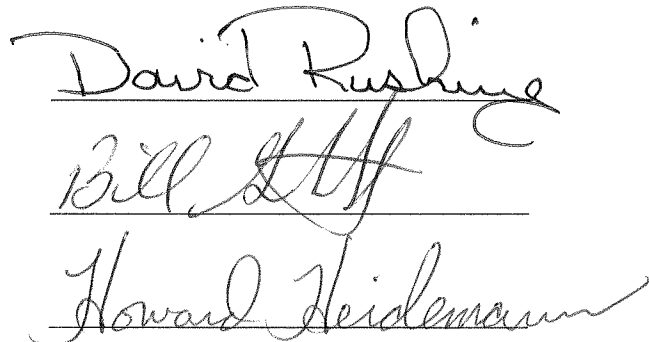 David Rushing
Bill
Howard Heidemann